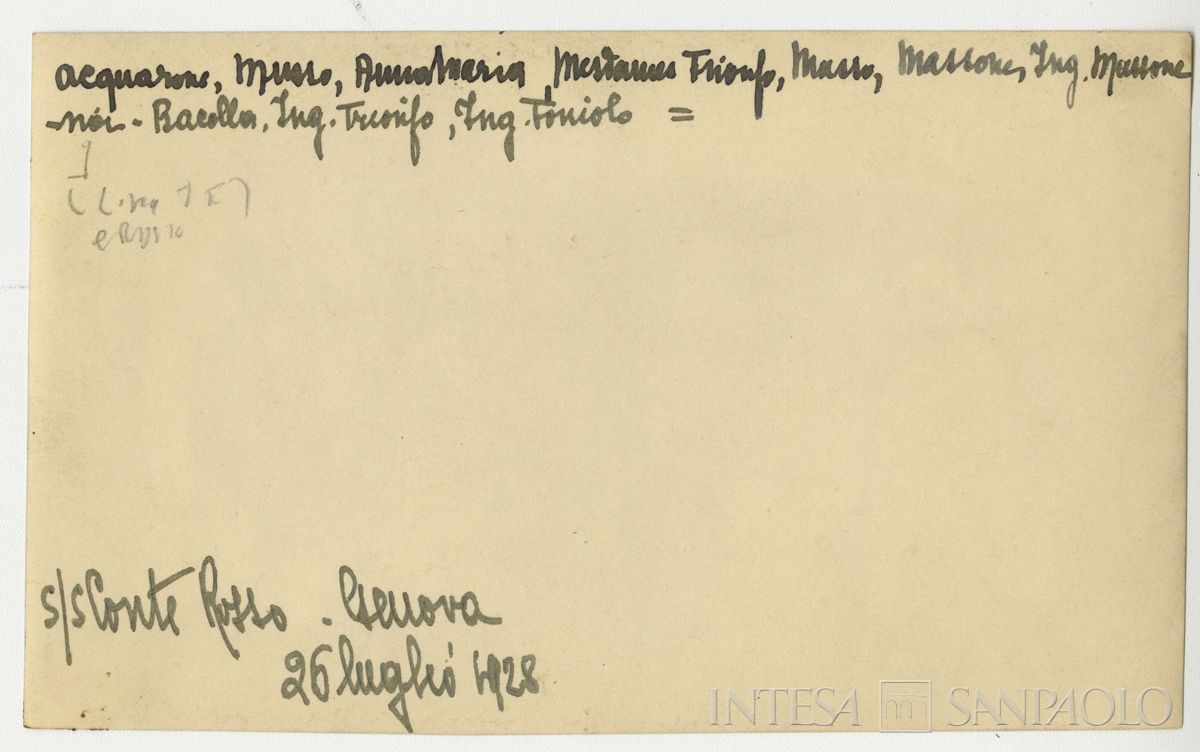 acquarone, Musso, Annamaria Mesdames Trionfo, Musso, Massone, Ing. Massone
noi - Bacolla, Ing. Trionfo, Ing. Toniolo =
e Rosso
s/s Conte Rosso . Genova
26 luglio 1928
INTESA SANPAOLO